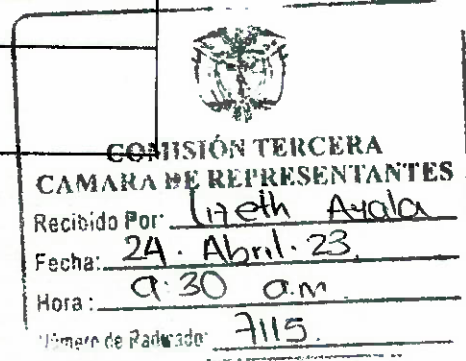 COMISIÓN TERCERA
CAMARA DE REPRESENTANTES
Recibido Por: Lizeth Ayala
Fecha: 24. Abril. 23.
Hora: 9:30 a.m.
Número de Radicado: 7115.